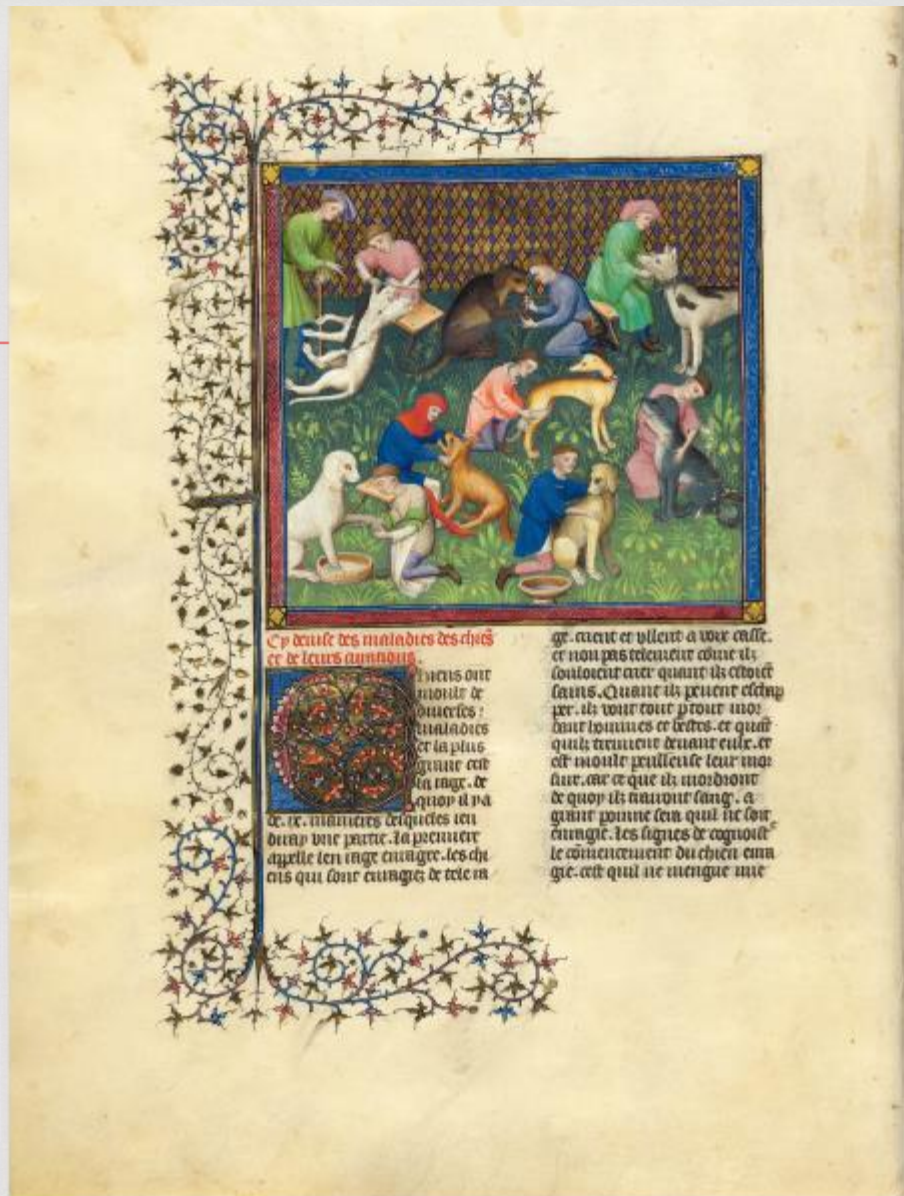 Cy deuise des maladies des chiēs
et de leurs curations
Chiens ont
moult de
diuerses
maladies
et la plus
grant cest
la rage. de
quoy il y a
de .ix. manieres desqueles ien
diray vne partie. la premiere
apelle len rage enragee. les chi
ens qui sont enragiez de tele ra
ge. crient et vllent a voix casse.
et non pas telement cōme ilz
souloient crier quant ilz estoiēt
sains. Quant ilz peuent eschap
per. ilz vont tout ptout mor
dant hommes et bestes. et quāt
quilz treuuent deuant eulx. et
est moult perilleuse leur mor
sure. car ce que ilz mordront
de quoy ilz trairont sang. a
grant poinne sera quil ne soit
enragie. les signes de cognoist
le cōmencement du chien enra
gie. cest quil ne mengue mie